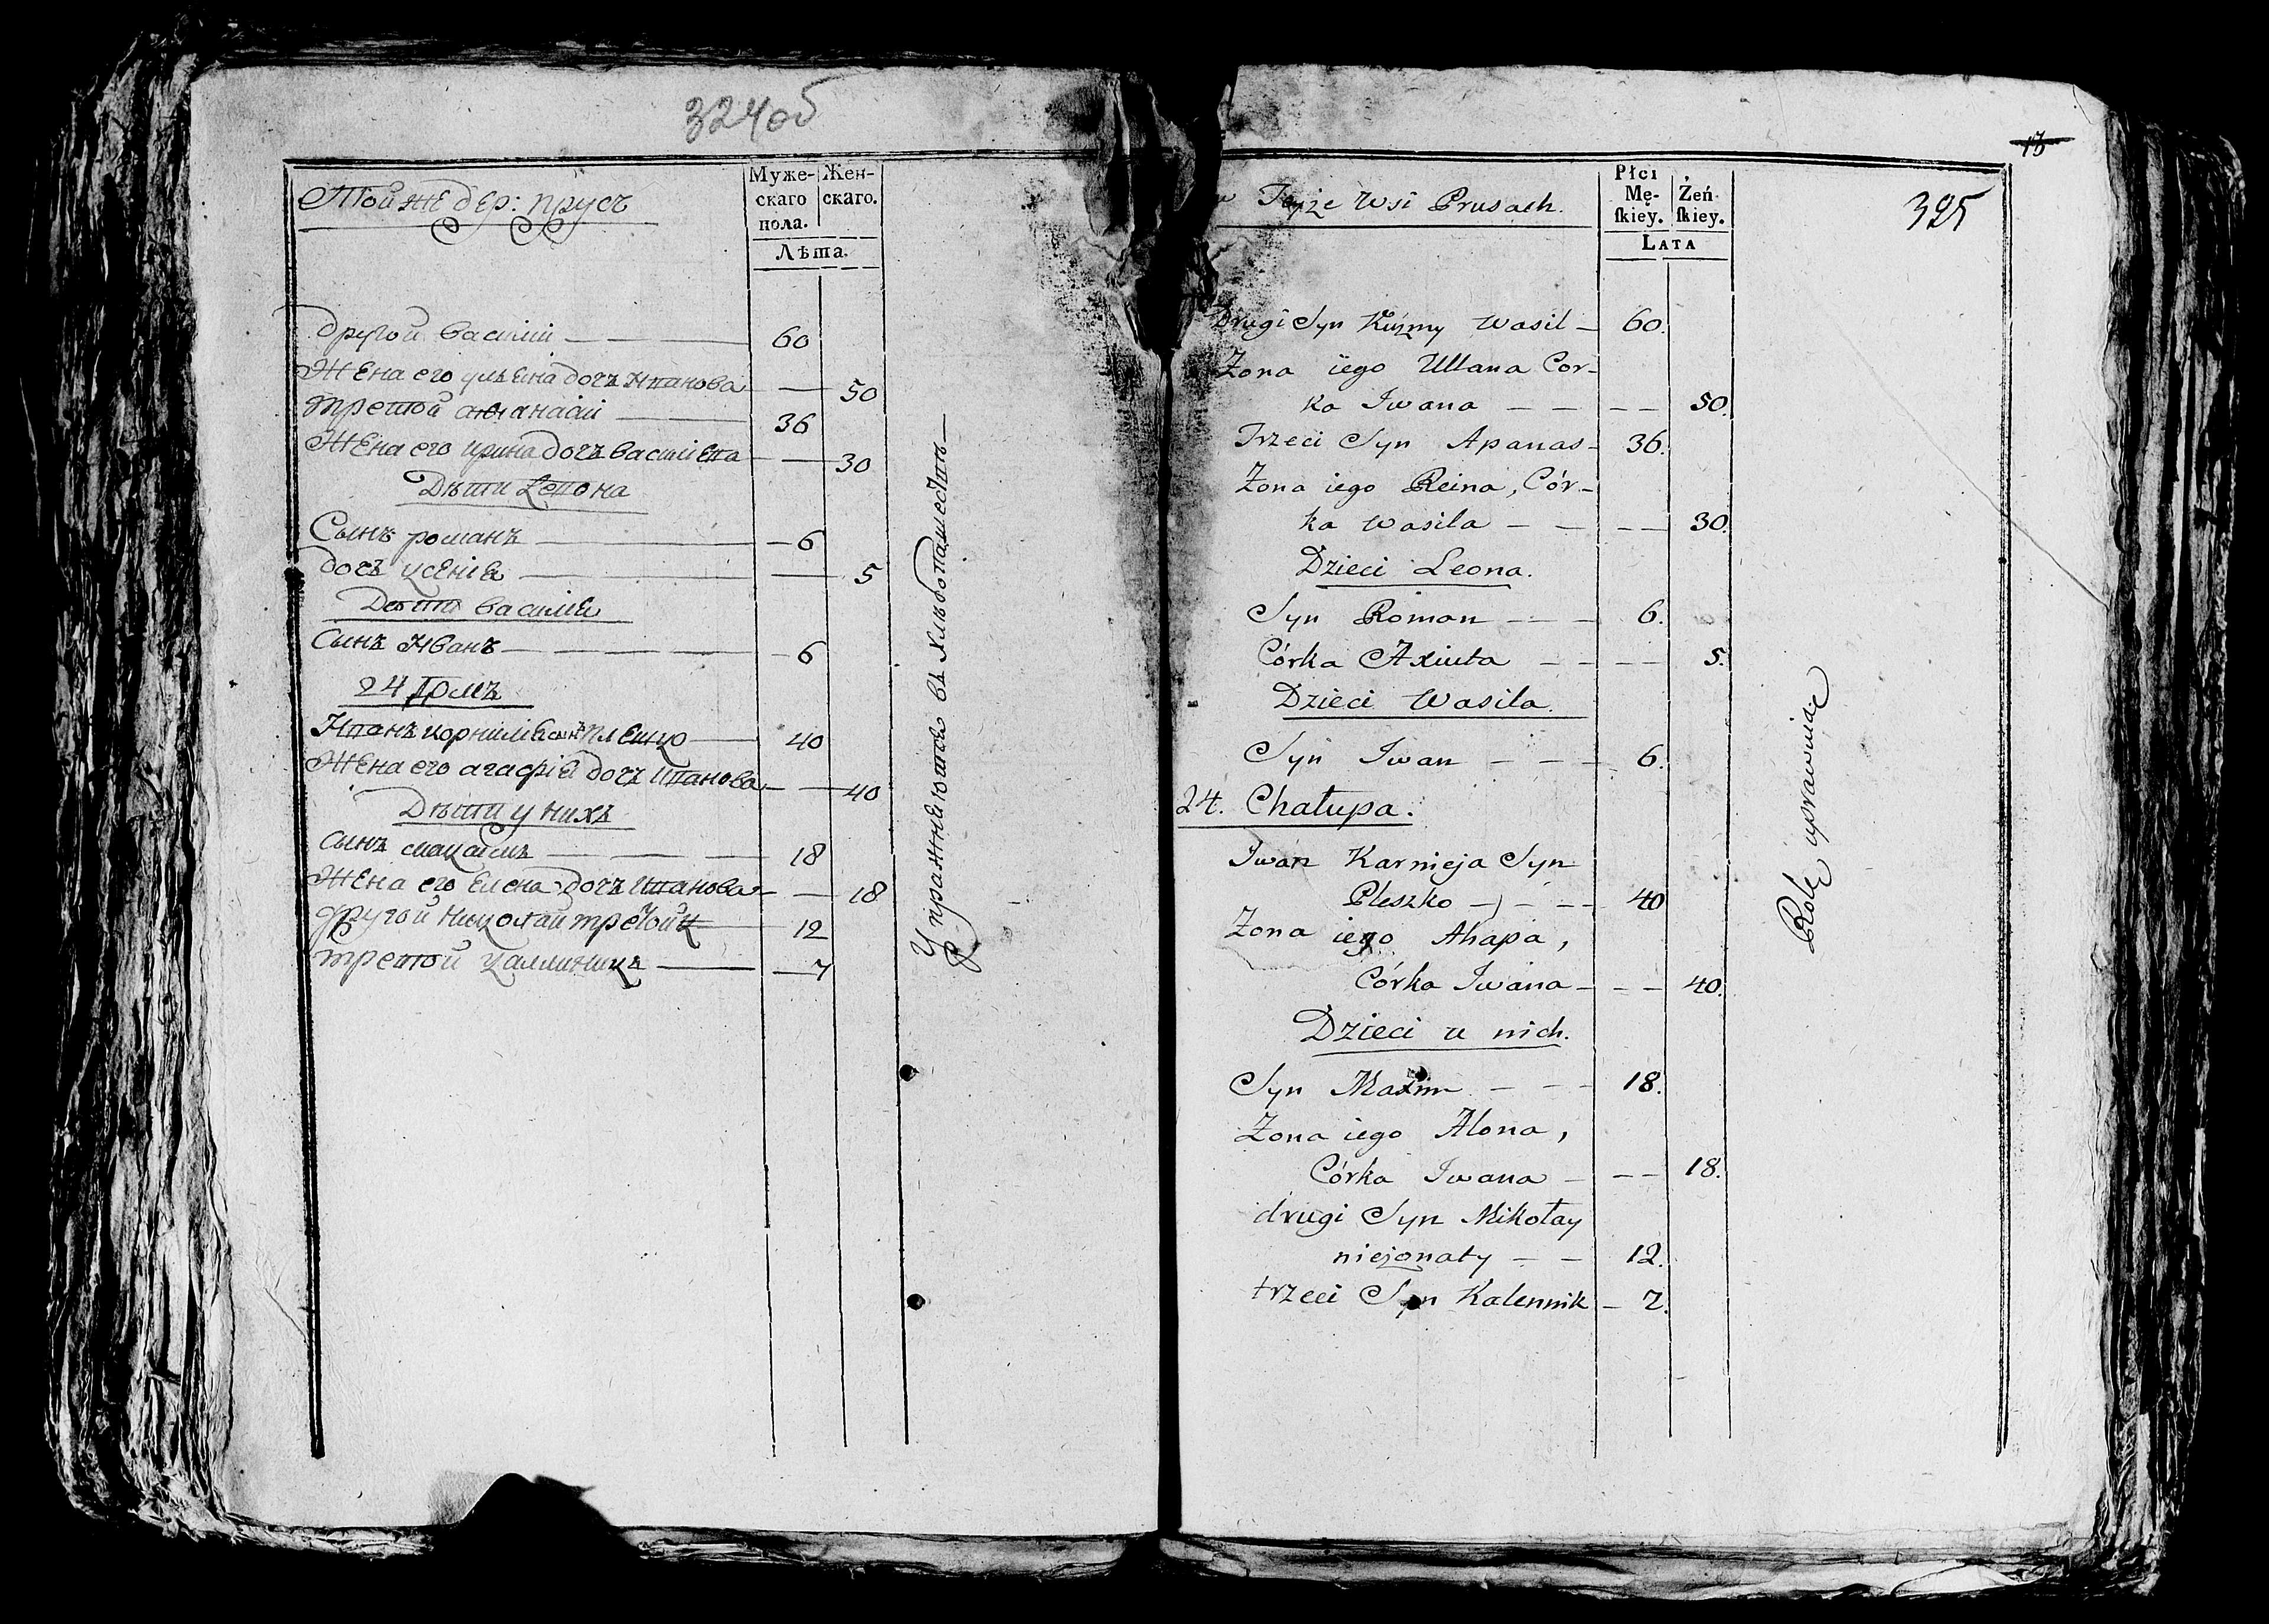 324об
Тойже дер: Прусъ
Муже-
скаго
пола.
Жен-
скаго.
Лѣта.
другой васили — 60
Жена его ульяна дочъ Ивано́ва — 50
третой афанасий — 36
Жена его ирина дочъ василева — 30
Дѣти Леона
Сынъ романъ — 6
дочъ ксения — 5
Дети василия
Сынъ Иванъ — 6
24 Домъ
Иванъ корнилiевсынъ плешко — 40
Жена его агафiя дочъ иванова — 40
Дѣти у нихъ
Сынъ макасимъ — 18
Жена его елена дочъ иванова — 18
другой николай — 12
третой калиникъ — 7
Упражняются въ хлѣбопашестъ —
13
325
w Teyże Wsi Prusach.
Płci
Mę-
ſkiey.
Żeń
ſkiey.
LATA
Drugi Syn Kuźmy Wasil — 60.
Żona iego Ullana Cor-
ka Iwana — — — — 50.
Trzeci Syn Apanas — 36.
Żona iego Reina, Cór-
ka Wasila — — — — 30.
Dzieci Leona.
Syn Roman — — 6.
Córka Axiuta — — — — 5.
Dzieci Wasila.
Syn Iwan — — — 6.
24. Chałupa.
Iwan Karnieja Syn
Pleszko — — — 40
Żona iego Ahapa,
Córka Iwana — — — 40.
Dzieci u nich.
Syn Maxim — — — 18.
Żona iego Alona,
Córka Iwana — — — 18.
drugi Syn Mikołay
nieżonaty — — 12.
trzeci Syn Kalennik — 7.
Rolę uprawuią